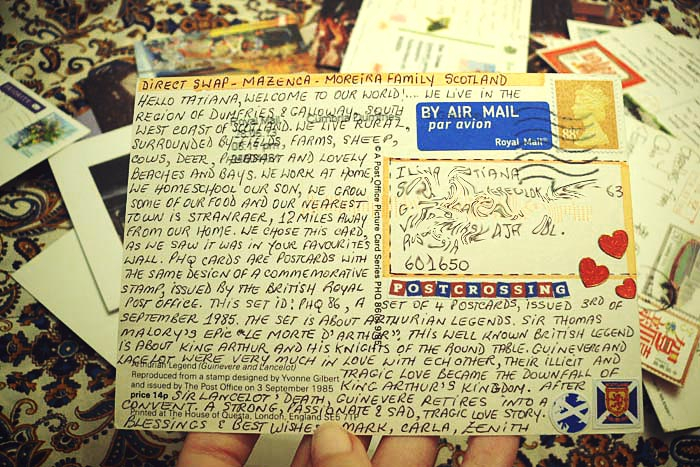 DIRECT SWAP - MAZENCA - MOREIRA FAMILY SCOTLAND
HELLO TATIANA, WELCOME TO OUR WORLD!... WE LIVE IN THE
REGION OF DUMFRIES & GALLOWAY, SOUTH
WEST COAST OF SCOTLAND. WE LIVE RURAL,
SURROUNDED BY FIELDS, FARMS, SHEEP,
COWS, DEER, PHEASANT AND LOVELY
BEACHES AND BAYS. WE WORK AT HOME,
WE HOMESCHOOL OUR SON, WE GROW
SOME OF OUR FOOD AND OUR NEAREST
TOWN IS STRANRAER, 12 MILES AWAY
FROM OUR HOME. WE CHOSE THIS CARD,
AS WE SAW IT WAS IN YOUR FAVOURITES
WALL. PHQ CARDS ARE POSTCARDS WITH
THE SAME DESIGN OF A COMMEMORATIVE
STAMP, ISSUED BY THE BRITISH ROYAL
POST OFFICE. THIS SET ID: PHQ 86, A SET OF 4 POSTCARDS, ISSUED 3RD OF
SEPTEMBER 1985. THE SET IS ABOUT ARTHURIAN LEGENDS. SIR THOMAS
MALORY'S EPIC "LE MORTE D'ARTHUR". THIS WELL KNOWN BRITISH LEGEND
IS ABOUT KING ARTHUR AND HIS KNIGHTS OF THE ROUND TABLE. GUINEVERE AND
LANCELOT WERE VERY MUCH IN LOVE WITH EACH OTHER, THEIR ILLICIT AND
TRAGIC LOVE BECAME THE DOWNFALL OF
KING ARTHUR'S KINGDOM. AFTER
SIR LANCELOT' DEATH, GUINEVERE RETIRES INTO A
CONVENT. A STRONG, PASSIONATE & SAD, TRAGIC LOVE STORY.
BLESSINGS & BEST WISHES MARK, CARLA, ZENITH
Arthurian Legend (Guinevere and Lancelot)
Reproduced from a stamp designed by Yvonne Gilbert
and issued by The Post Office on 3 September 1985
price 14p
Printed at The House of Questa, London, England SE5 7TP
© A Post Office Picture Card Series PHQ 86
Royal Mail
Cumbria Dumfries
BY AIR MAIL
par avion
Royal Mail
88
TATIANA
63
601650
POSTCROSSING